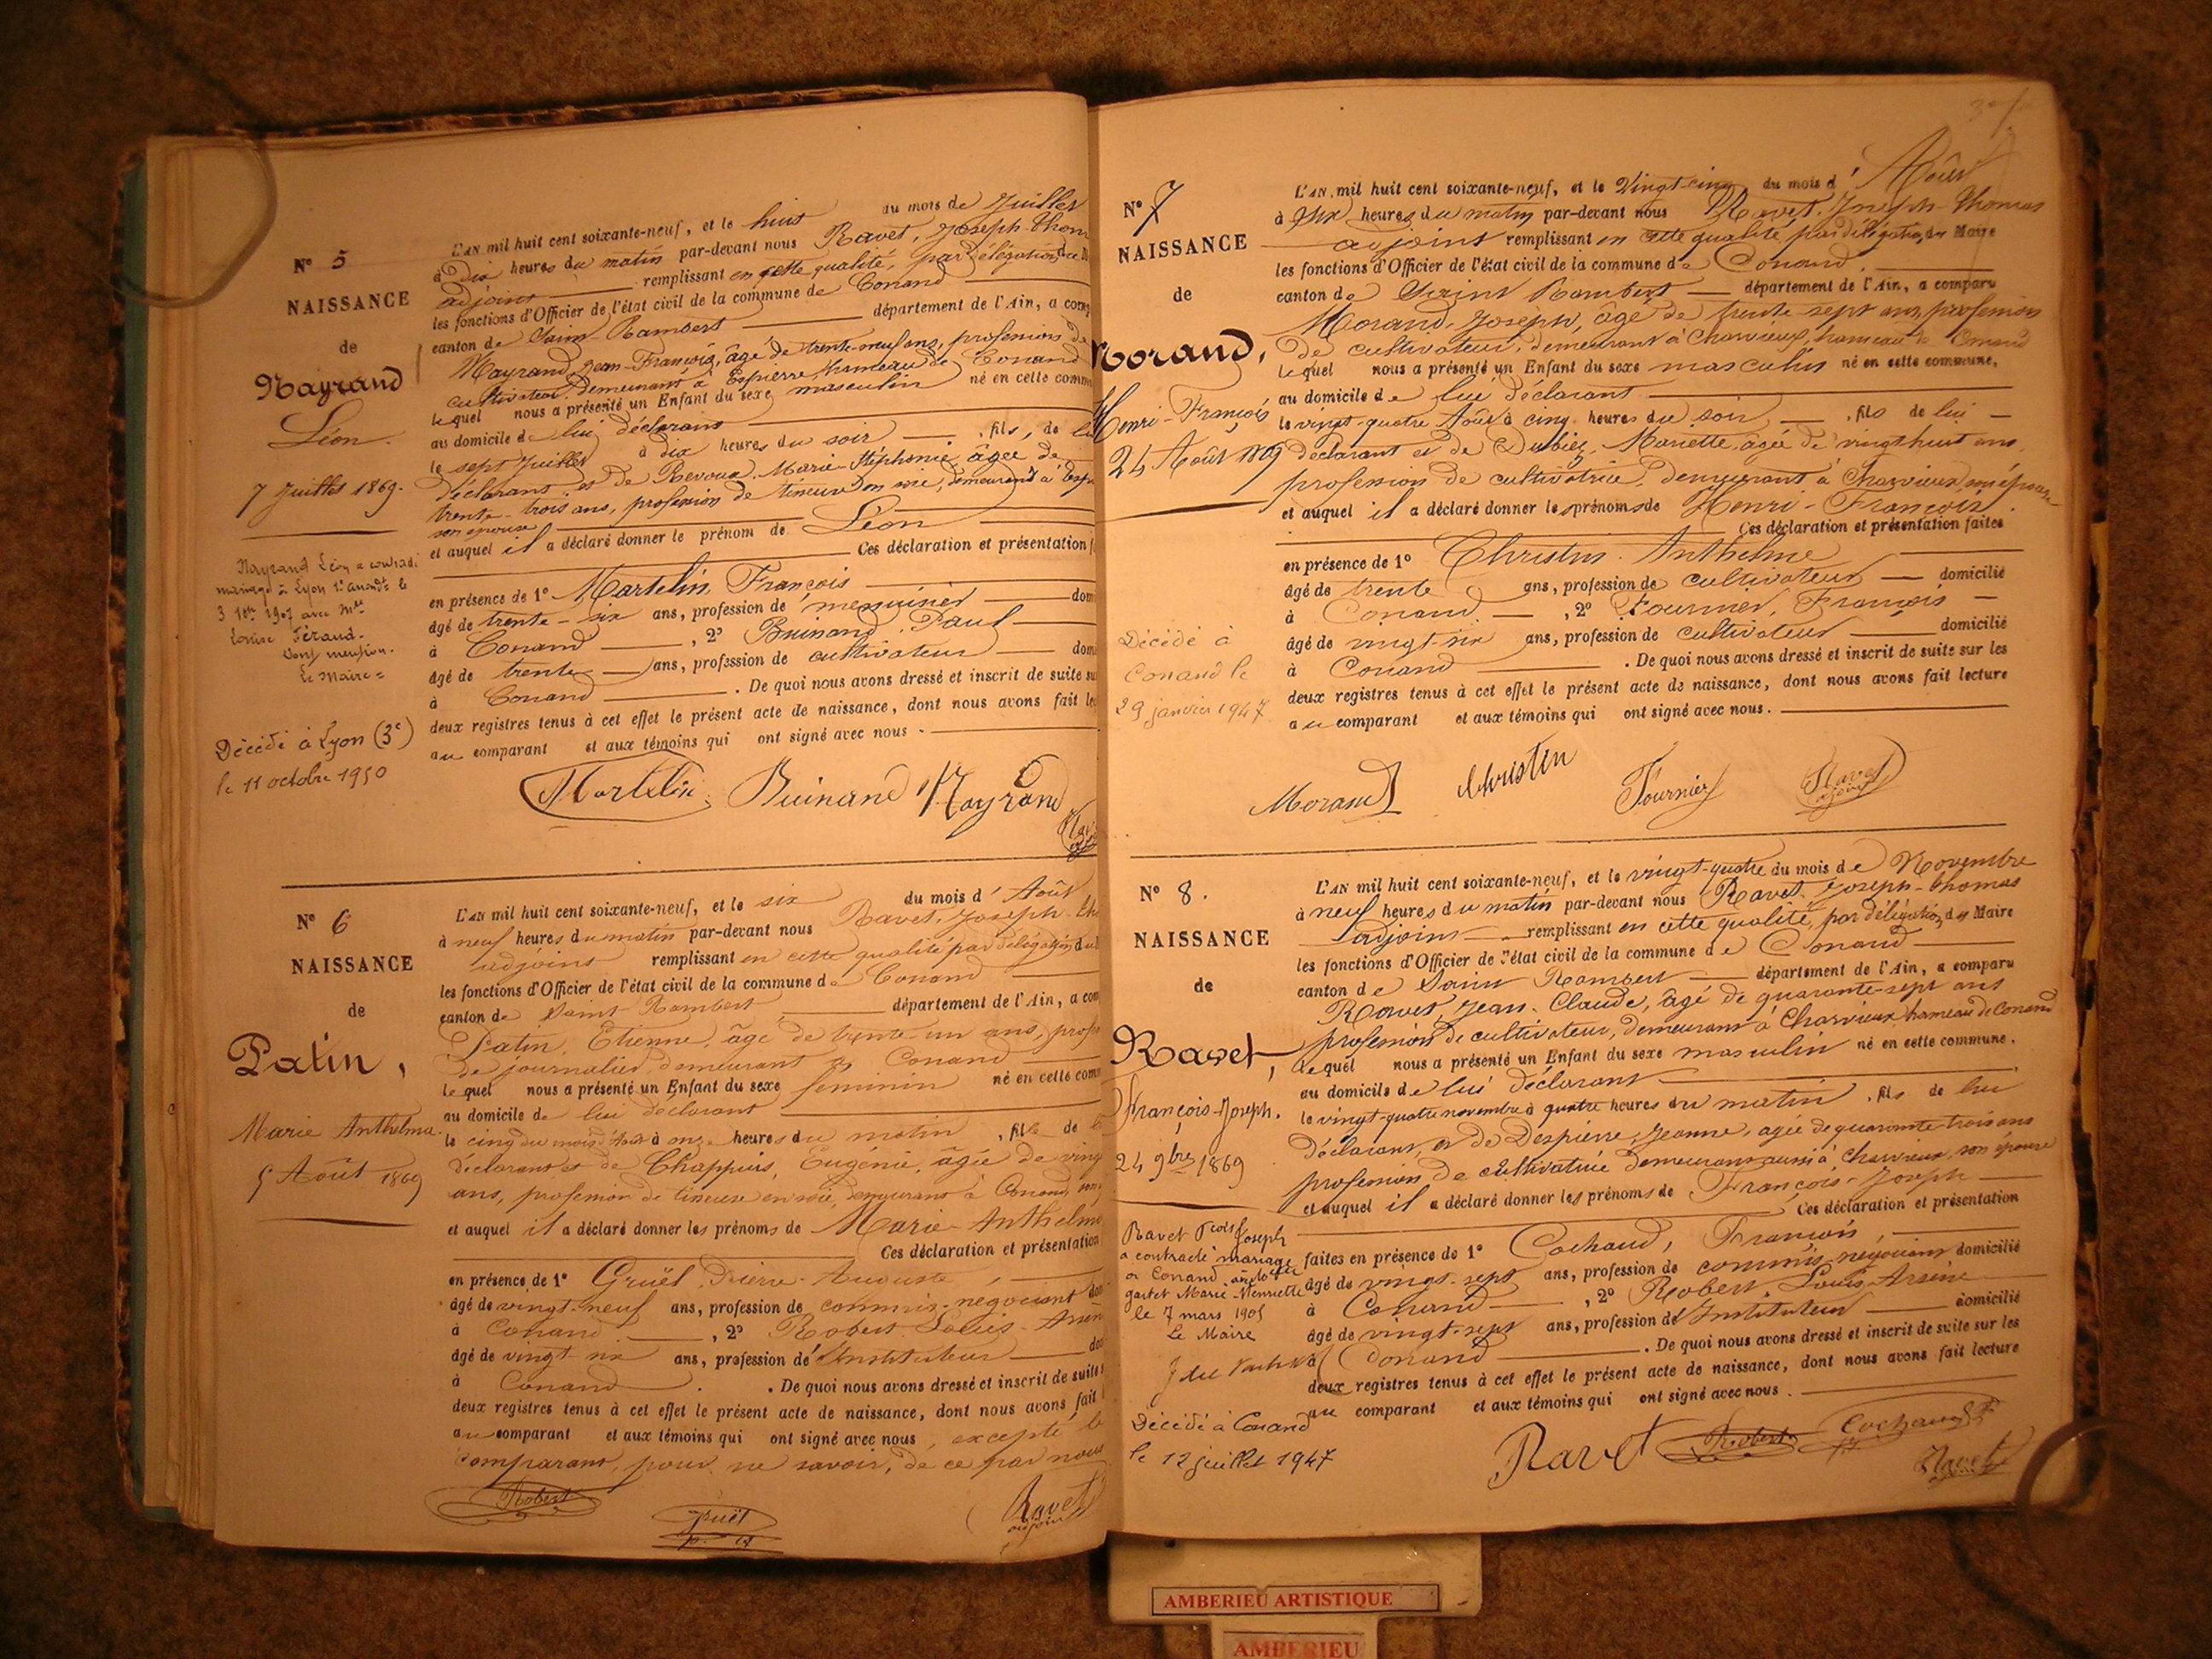 N° 5
NAISSANCE
de
Mayrand
Léon.
7 Juillet 1869.
Mayrand Léon a contracté
mariage à Lyon 1er arrondt le
3 1907 avec Melle
Louise Féraud.
Dont mention.
Le Maire =
Décédé à Lyon (3e)
le 11 octobre 1950
L'AN mil huit cent soixante-neuf, et le huit du mois de Juillet
à dix heures du matin par-devant nous Ravet, Joseph-Thom
adjoint remplissant en cette qualité, par délégation du
les fonctions d'Officier de l'état civil de la commune de Conand
canton de Saint-Rambert département de l'Ain, a comp
Mayrand, Jean-François, âgé de trente-neuf ans, profession de
cultivateur, demeurant à Espierre hameau de Conand
lequel nous a présenté un Enfant du sexe masculin né en cette comm
au domicile de lui déclarant
le sept Juillet à dix heures du soir, fils, de lui
déclarant et de Revoux, Marie-Stéphanie, âgée de
trente-trois ans, profession de tisseuse en soie, demeurant à Esp
son épouse
et auquel il a déclaré donner le prénom de Léon
Ces déclaration et présentation f
en présence de 1° Martelin, François
âgé de trente-six ans, profession de menuisier dom
à Conand, 2° Buinand, Paul
âgé de trente ans, profession de cultivateur dom
à Conand. De quoi nous avons dressé et inscrit de suite su
deux registres tenus à cet effet le présent acte de naissance, dont nous avons fait le
au comparant et aux témoins qui ont signé avec nous.
Martelin Buinand Mayrand
N° 6
NAISSANCE
de
Patin,
Marie Anthelme.
5 Août 1869
L'AN mil huit cent soixante-neuf, et le six du mois d'Août
à neuf heures du matin par-devant nous Ravet, Joseph-Th
adjoint remplissant en cette qualité par délégation du
les fonctions d'Officier de l'état civil de la commune de Conand
canton de Saint-Rambert département de l'Ain, a com
Patin, Etienne, âgé de trente-un ans, profes
de journalier, demeurant à Conand
lequel nous a présenté un Enfant du sexe féminin né en cette com
au domicile de lui déclarant
le cinq du mois d'Août à onze heures du matin, fille de
déclarant et de Chappuis, Eugénie, âgée de vingt
ans, profession de tisseuse en soie, demeurant à Conand, son
et auquel il a déclaré donner les prénoms de Marie-Anthelme
Ces déclaration et présentation
en présence de 1° Gruël, Pierre-Auguste,
âgé de vingt-neuf ans, profession de commis-négociant dom
à Conand, 2° Robert Louis-Arsène
âgé de vingt-six ans, profession d'Instituteur dom
à Conand. De quoi nous avons dressé et inscrit de suite s
deux registres tenus à cet effet le présent acte de naissance, dont nous avons fait l
au comparant et aux témoins qui ont signé avec nous, excepté le
comparant, pour ne savoir, de ce par nous
Robert Gruël Ravet
adjoint
N° 7
NAISSANCE
de
Morand,
Henri-François
24 Août 1869
Décédé à
Conand le
29 janvier 1947
L'AN mil huit cent soixante-neuf, et le Vingt-cinq du mois d'Août
à dix heures du matin par-devant nous Ravet, Joseph-Thomas
adjoint remplissant en cette qualité par délégation du Maire
les fonctions d'Officier de l'état civil de la commune de Conand,
canton de Saint Rambert département de l'Ain, a comparu
Morand, Joseph, âgé de trente-sept ans, profession
de cultivateur, demeurant à Charvieux, hameau de Conand
lequel nous a présenté un Enfant du sexe masculin né en cette commune,
au domicile de lui déclarant
le vingt-quatre Août à cinq heures du soir, fils de lui
déclarant et de Dubiez, Mariette, âgée de vingt huit ans,
profession de cultivatrice, demeurant à Charvieux, son épouse
et auquel il a déclaré donner les prénoms de Henri-François.
Ces déclaration et présentation faites
en présence de 1° Christin Anthelme
âgé de trente ans, profession de cultivateur domicilié
à Conand, 2° Fournier, François
âgé de vingt-six ans, profession de cultivateur domicilié
à Conand. De quoi nous avons dressé et inscrit de suite sur les
deux registres tenus à cet effet le présent acte de naissance, dont nous avons fait lecture
au comparant et aux témoins qui ont signé avec nous.
Morand Christin Fournier Ravet
adjoint
N° 8.
NAISSANCE
de
Ravet,
François-Joseph.
24 9bre 1869
Ravet Fcois Joseph
a contracté mariage
à Conand avec
Marie-Henriette
le 7 mars 1905
Le Maire
Décédé à Conand
le 12 juillet 1947
L'AN mil huit cent soixante-neuf, et le vingt-quatre du mois de Novembre
à neuf heures du matin par-devant nous Ravet, Joseph-Thomas
adjoint remplissant en cette qualité, par délégation du Maire
les fonctions d'Officier de l'état civil de la commune de Conand
canton de Saint Rambert département de l'Ain, a comparu
Ravet, Jean-Claude, âgé de quarante-sept ans
profession de cultivateur, demeurant à Charvieux hameau de Conand
lequel nous a présenté un Enfant du sexe masculin né en cette commune.
au domicile de lui déclarant
le vingt-quatre novembre à quatre heures du matin, fils de lui
déclarant, et de Despierre, Jeanne, âgée de quarante-trois ans
profession de cultivatrice demeurant aussi à Charvieux, son épouse
et auquel il a déclaré donner les prénoms de François-Joseph
Ces déclaration et présentation
faites en présence de 1° Cochaud, François,
âgé de vingt-sept ans, profession de commis-négociant domicilié
à Conand, 2° Robert, Louis-Arsène
âgé de vingt-sept ans, profession d'Instituteur domicilié
à Conand. De quoi nous avons dressé et inscrit de suite sur les
deux registres tenus à cet effet le présent acte de naissance, dont nous avons fait lecture
au comparant et aux témoins qui ont signé avec nous.
Ravet Robert Cochaud Ravet
AMBERIEU ARTISTIQUE
AMBERIEU